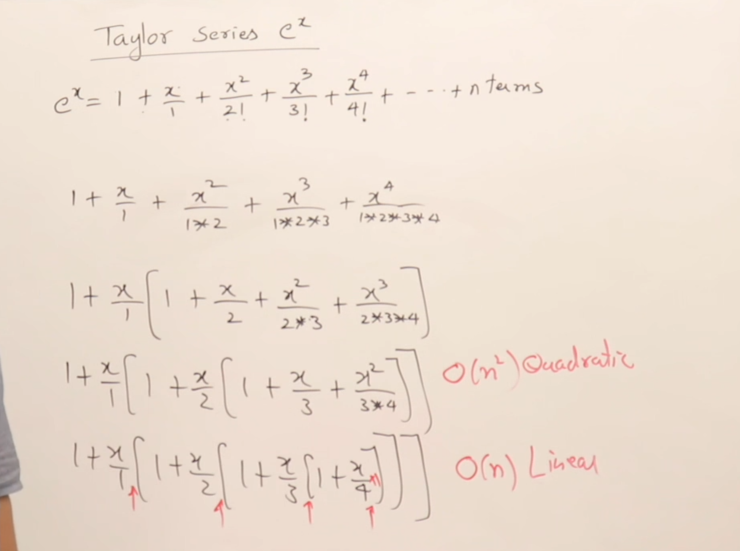 Taylor Series eˣ
eˣ = 1 + x/1 + x²/2! + x³/3! + x⁴/4! + - - - + n terms
1 + x/1 + x²/1*2 + x³/1*2*3 + x⁴/1*2*3*4
1 + x/1 [1 + x/2 + x²/2*3 + x³/2*3*4]
1 + x/1 [1 + x/2 [1 + x/3 + x²/3*4]] O(n²) Quadratic
1 + x/1 [1 + x/2 [1 + x/3 [1 + x/4]]] O(n) Linear